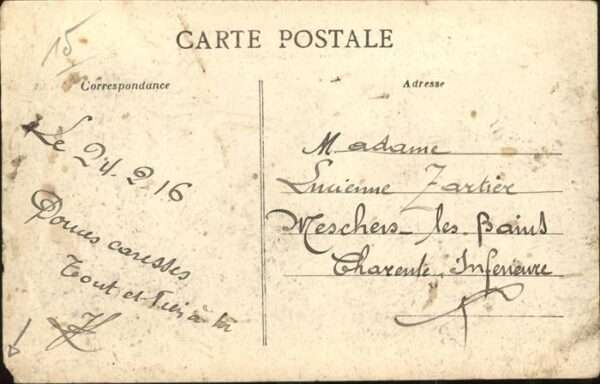 15
CARTE POSTALE
Correspondance
Adresse
Le 24.2 16
Douces caresses
Tout et rien à toi
Madame
Lucienne Tartier
Meschers-les-Bains
Charente Inferieure